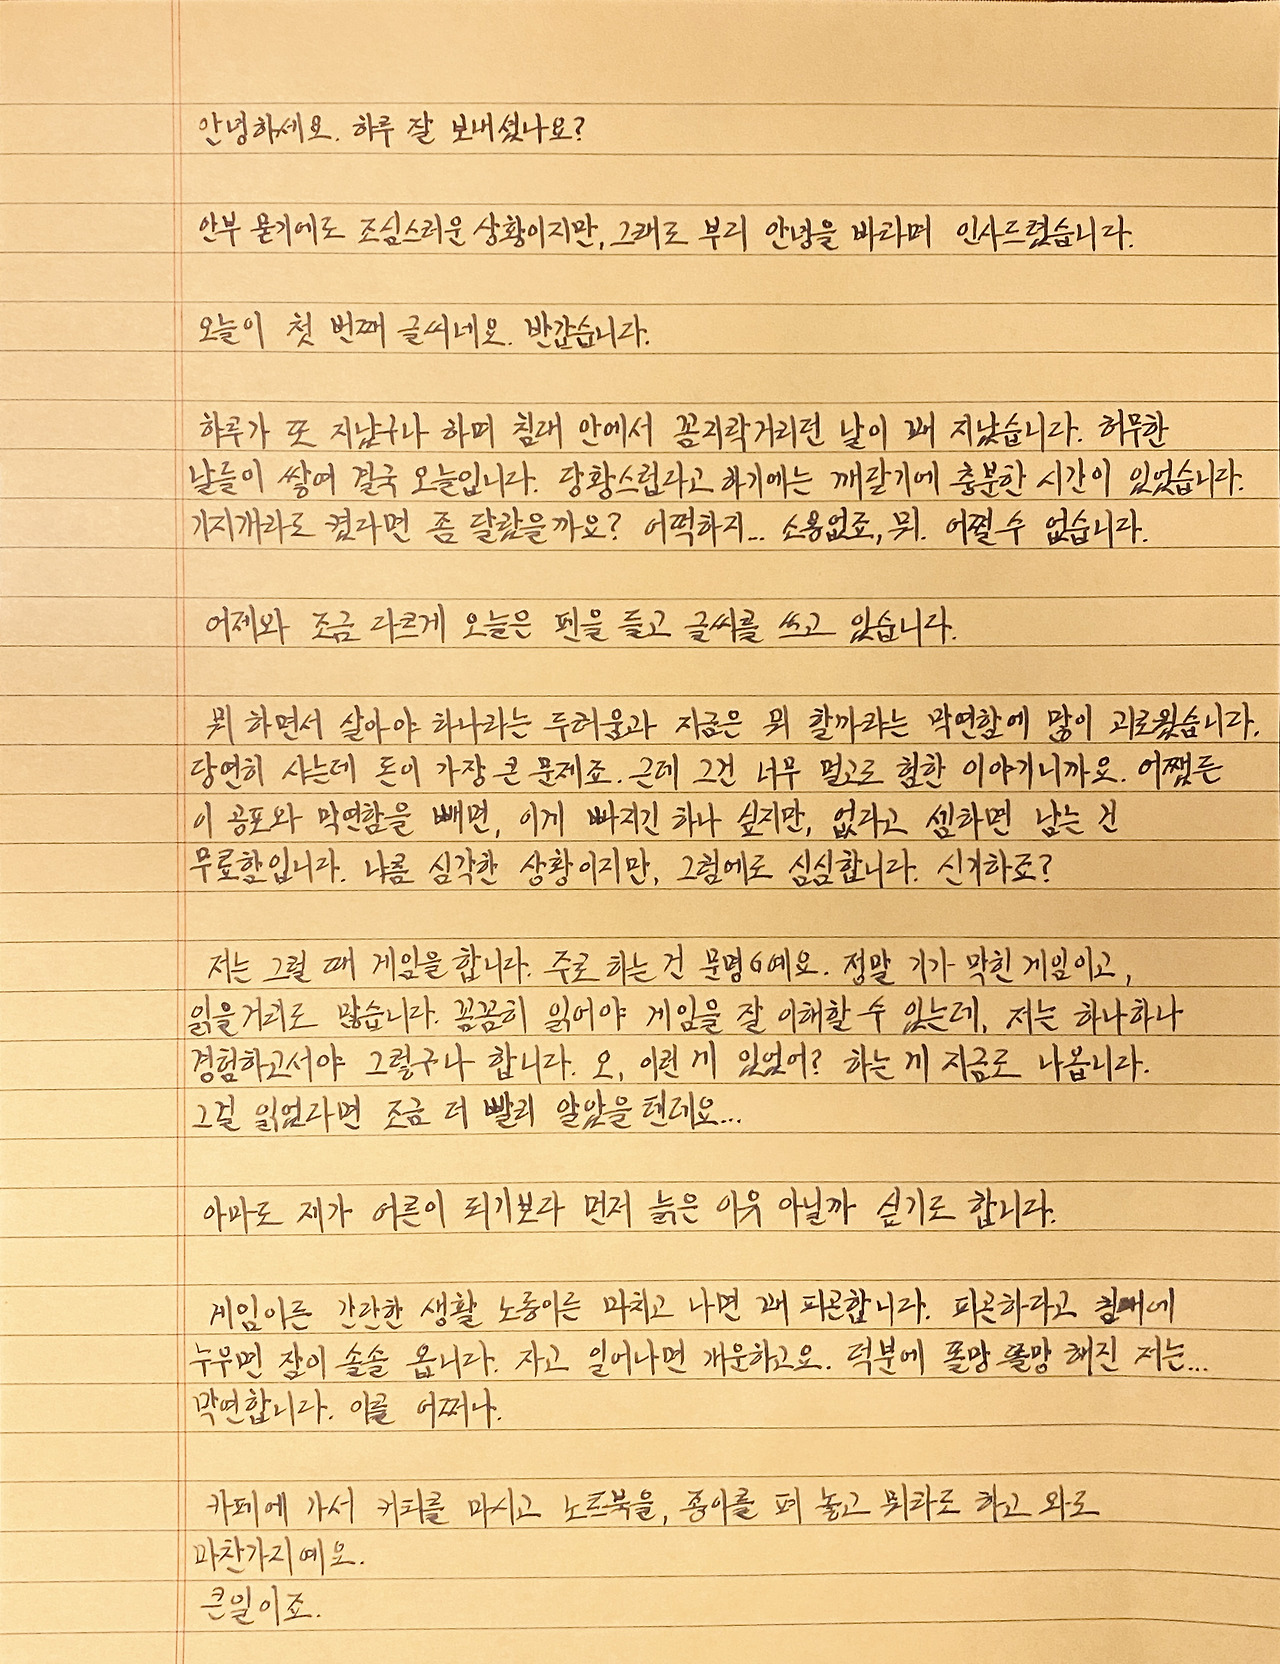 안녕하세요. 하루 잘 보내셨나요?
안부 묻기에도 조심스러운 상황이지만, 그래도 부디 안녕을 바라며 인사드렸습니다.
오늘이 첫 번째 글씨네요. 반갑습니다.
하루가 또 지났구나 하며 침대 안에서 꼼지락거리던 날이 꽤 지났습니다. 허무한
날들이 쌓여 결국 오늘입니다. 당황스럽다고 하기에는 깨닫기에 충분한 시간이 있었습니다.
기지개라도 켰다면 좀 달랐을까요? 어떡하지... 소용없죠, 뭐. 어쩔 수 없습니다.
어제와 조금 다르게 오늘은 펜을 들고 글씨를 쓰고 있습니다.
뭐 하면서 살아야 하나라는 두려움과 지금은 뭐 할까라는 막연함에 많이 괴로웠습니다.
당연히 사는데 돈이 가장 큰 문제죠. 근데 그건 너무 멀고도 험한 이야기니까요. 어쨌든
이 공포와 막연함을 빼면, 이게 빠지긴 하나 싶지만, 없다고 셈하면 남는 건
무료함입니다. 나름 심각한 상황이지만, 그럼에도 심심합니다. 신기하죠?
저는 그럴 때 게임을 합니다. 주로 하는 건 문명6예요. 정말 기가 막힌 게임이고,
읽을거리도 많습니다. 꼼꼼히 읽어야 게임을 잘 이해할 수 있는데, 저는 하나하나
경험하고서야 그렇구나 합니다. 오, 이런 게 있었어? 하는 게 지금도 나옵니다.
그걸 읽었다면 조금 더 빨리 알았을 텐데요...
아마도 제가 어른이 되기보다 먼저 늙은 이유 아닐까 싶기도 합니다.
게임이든 간단한 생활 노동이든 마치고 나면 꽤 피곤합니다. 피곤하다고 침대에
누우면 잠이 솔솔 옵니다. 자고 일어나면 개운하고요. 덕분에 똘망 똘망 해진 저는...
막연합니다. 이를 어쩌나.
카페에 가서 커피를 마시고 노트북을, 종이를 펴 놓고 뭐라도 하고 와도
마찬가지예요.
큰일이죠.